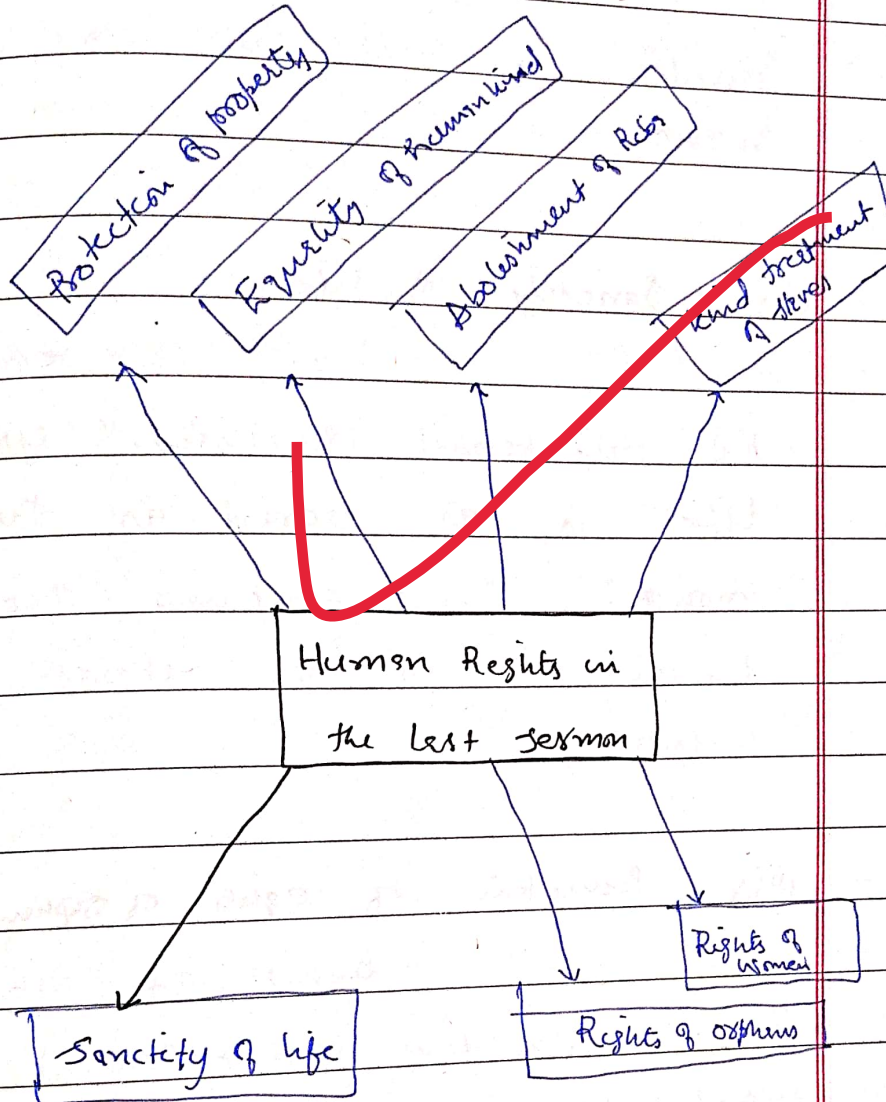 Protection of property
Equality of humankind
Abolishment of Reba
kind treatment
of slaves
Human Rights in
the last sermon
Rights of
women
Rights of orphans
Sanctity of life